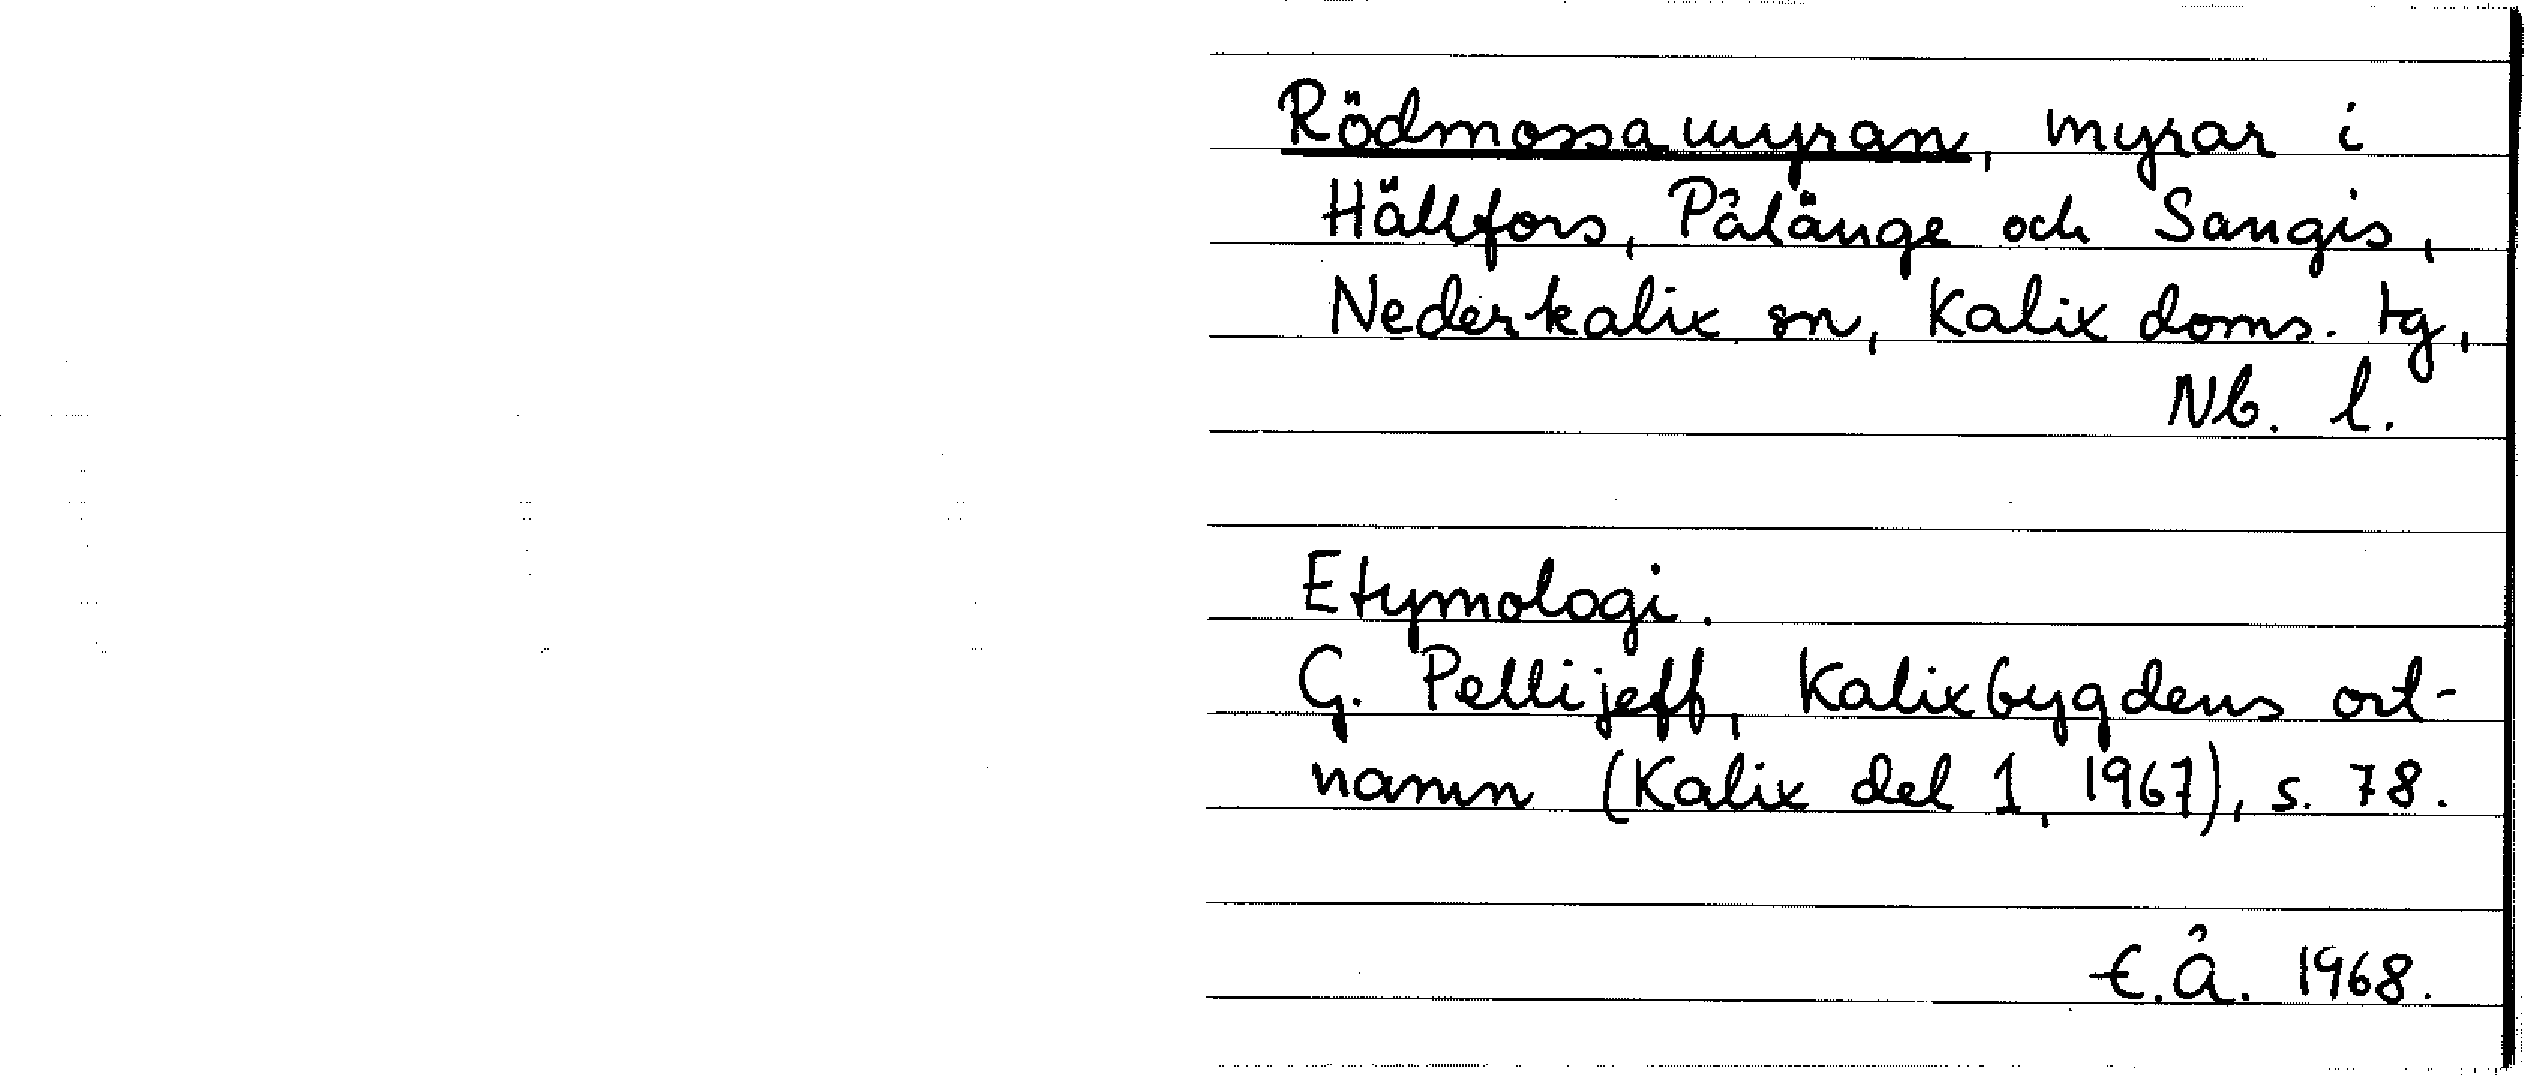 Rödmossamyran, myrar i
Hällfors, Pålänge och Sangis,
Nederkalix sn, Kalix doms. tg,
Nb. l.
Etymologi.
G. Pellijeff, Kalixbygdens ort-
namn (Kalix del 1, 1967), s. 78.
E.Å. 1968.